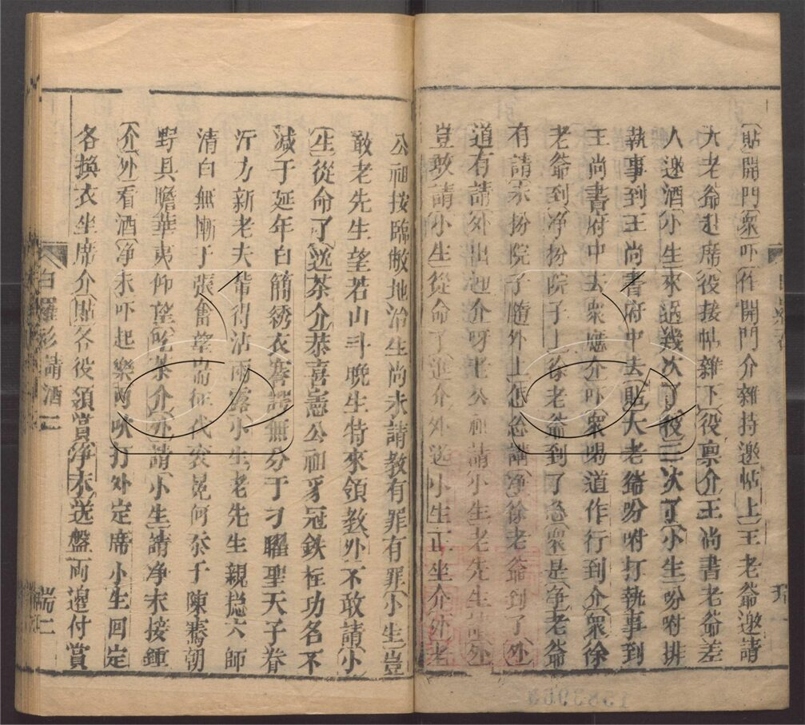 貼開門衆吓作開門介雜持邀帖上王老爺邀請
大老爺起席役接帖雜下役禀介王尚書老爺差
人邀酒小生來邀幾次了役三次了小生吩咐排
執事到王尚書府中去貼大老爺吩咐打執事到
王尚書府中去衆應介吓衆喝道作行到介衆徐
老爺到净扮院子上徐老爺到了急衆是净老爺
有請末扮院子隨外上怎麼講净徐老爺到了外
道有請外出迎介呀老公祖請小生老先生請外
豈敢請小生從命了進介外送小生正坐介外老
公祖按臨敝地治生尚未請教有罪有罪小生豈
敢老先生望若山斗晚生特來領教外不敢請小
生從命了送茶介恭喜憲公祖豸冠鉄柱功名不
減于延年白簡綉衣謇諤無分于刁曜聖天子眷
新老夫 得沾雨露小生老先生親 六師
清白無慚于張奮望 代衮冕何 于陳騫朝
野具瞻華夷仰望吃茶介外請小生請净末接鍾
介外看酒净末吓起樂 吹打外定席小生回定
各換衣坐席介貼各役領賞净末送盤両邊付賞
白羅衫請酒二